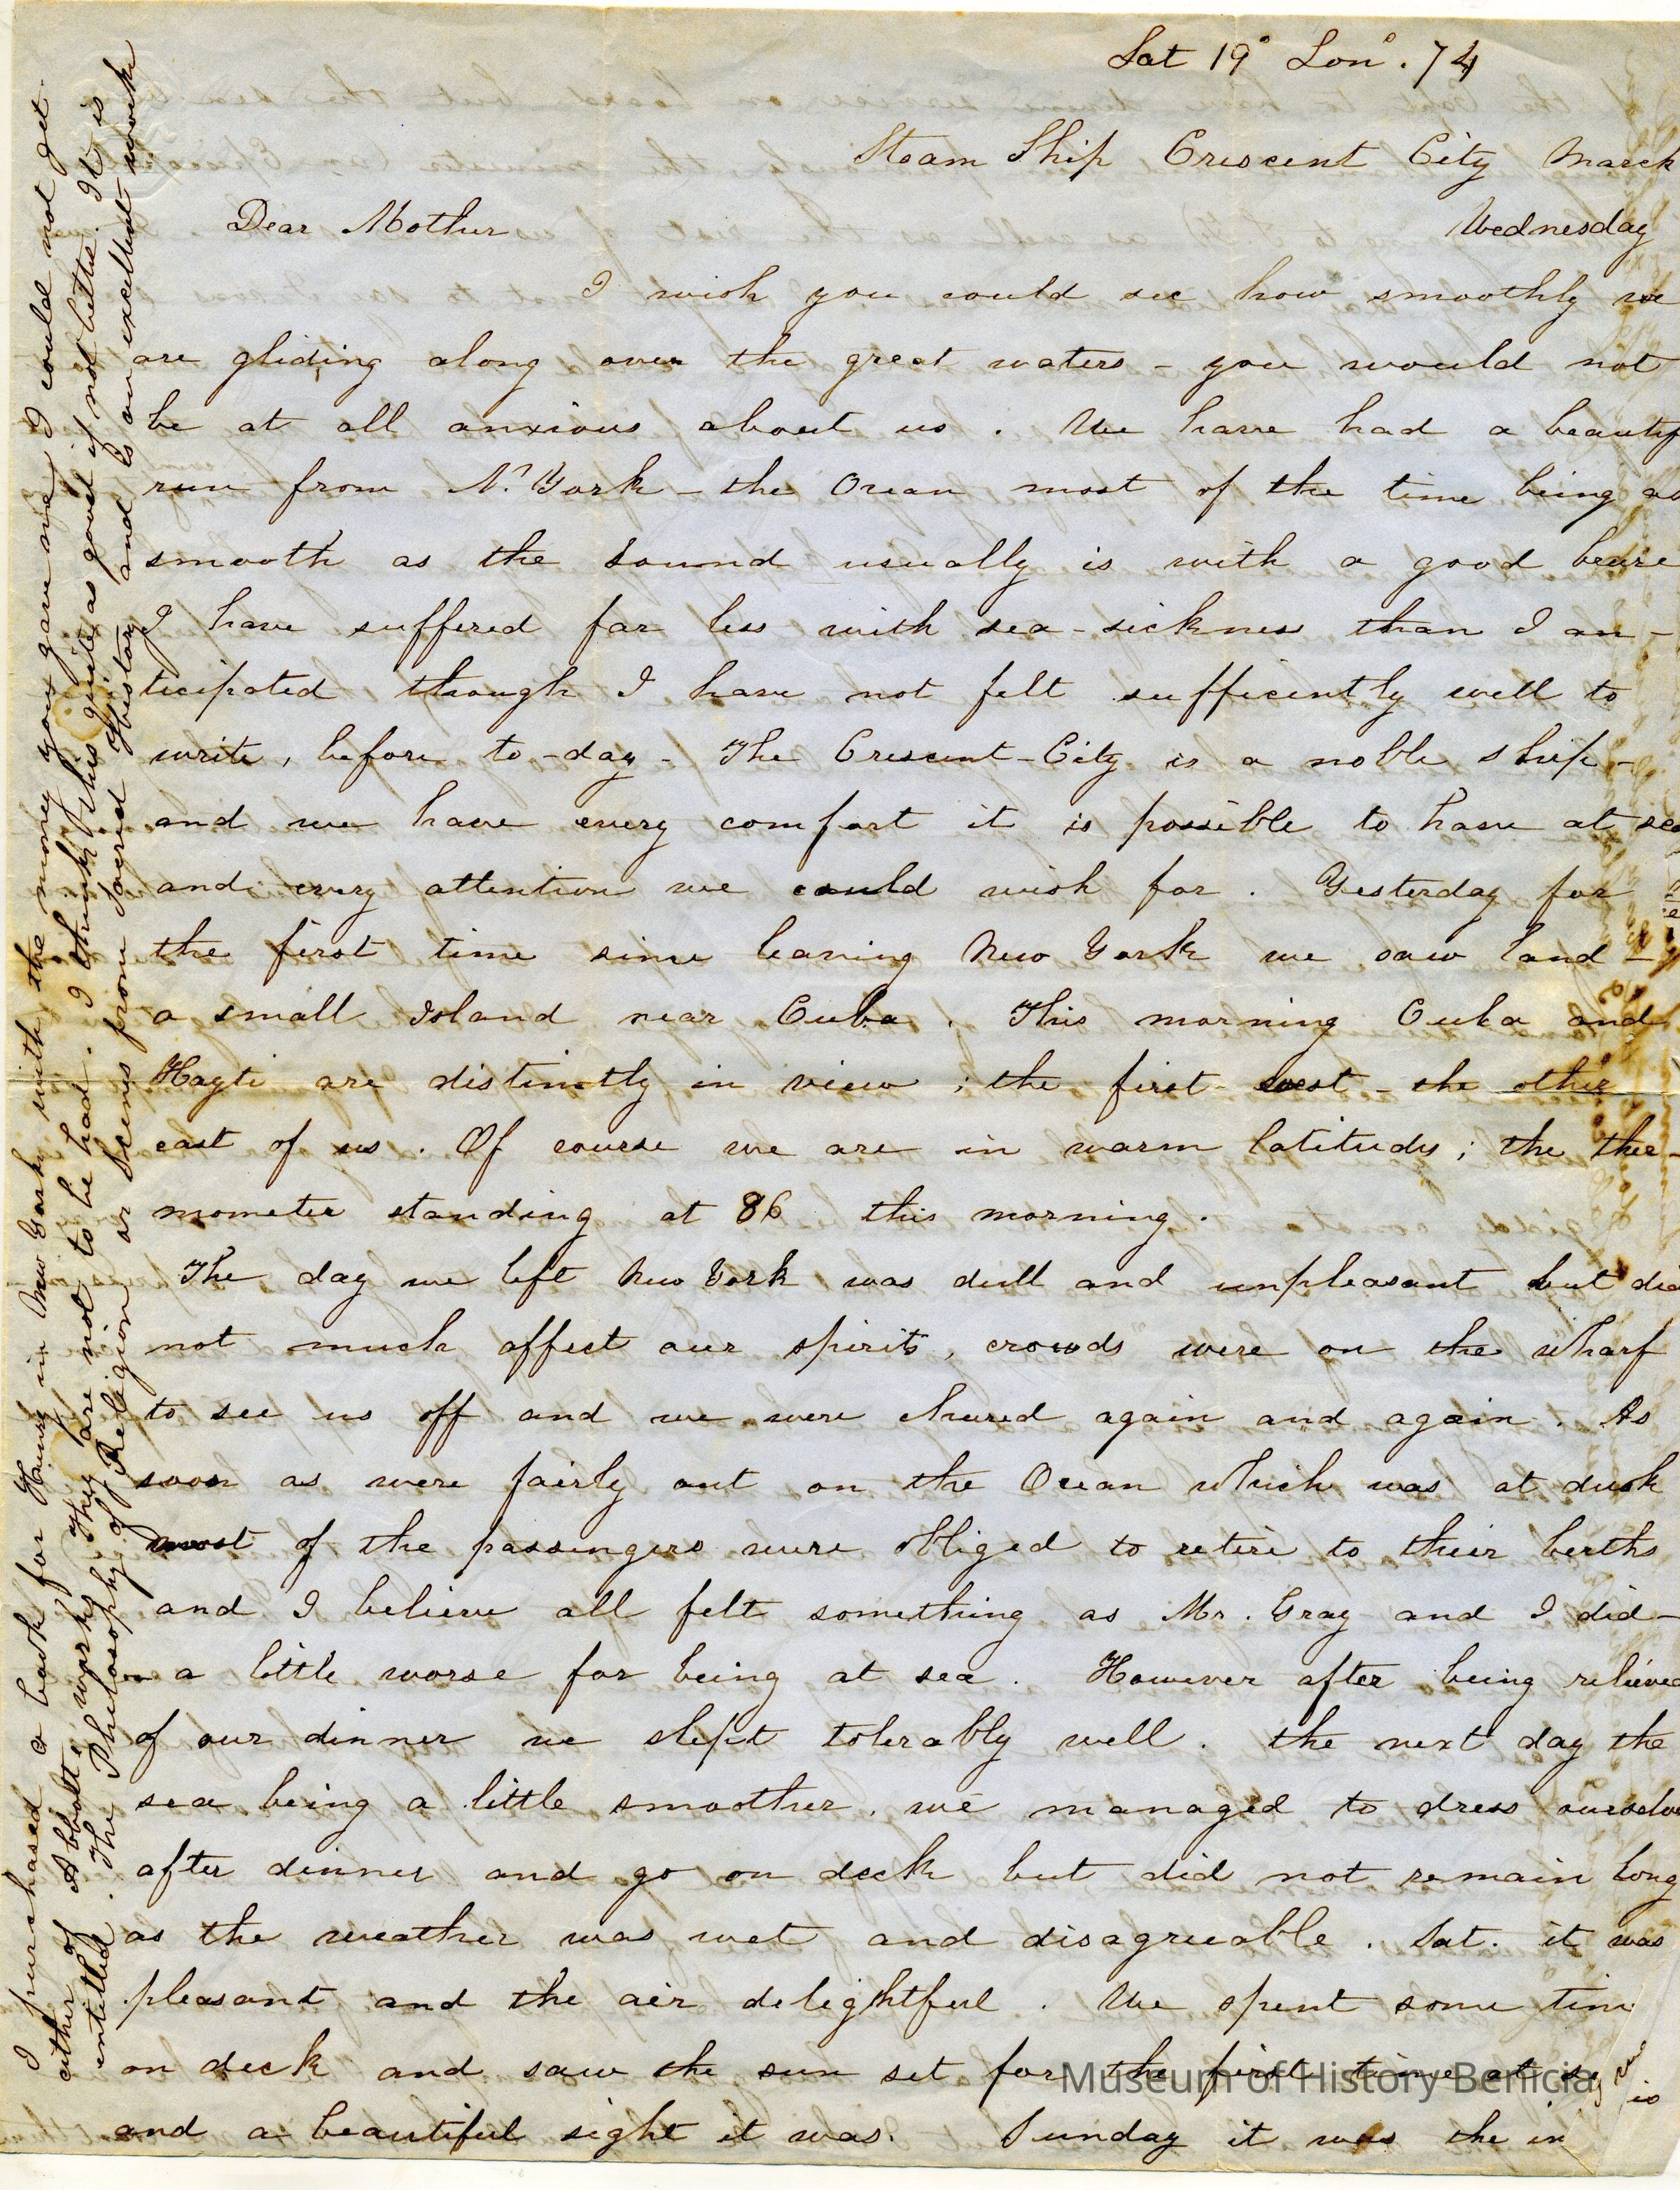 Lat 19° Lon°. 74
Steam Ship Crescent City March
Dear Mother Wednesday
I wish you could see how smoothly we
are gliding along over the great waters - you would not
be at all anxious about us. We have had a beautif
run from N. York - the Ocean most of the time being as
smooth as the Sound usually is with a good breeze
I have suffered far less with sea-sickness than I an-
ticipated though I have not felt sufficently well to
write, before to-day - The Crescent-City is a noble ship -
and we have every comfort it is possible to have at sea
and every attention we could wish for. Yesterday for
the first time since leaving New York we saw land -
a small Island near Cuba. This morning Cuba and
Hayti are distinctly in view ; the first west - the other
east of us. Of course we are in warm latitudes ; the ther-
mometer standing at 86 this morning.
The day we left New York was dull and unpleasant but did
not much affect our spirits, crowds were on the wharf
to see us off and we were cheered again and again. As
soon as were fairly out on the Ocean which was at dusk
most of the passengers were obliged to retire to their berths
and I believe all felt something as Mr. Gray and I did -
a little worse for being at sea. However after being relieved
of our dinner we slept tolerably well. the next day the
sea being a little smoother, we managed to dress ourselve
after dinner and go on deck but did not remain long
as the weather was wet and disagreeable. Sat. it was
pleasant and the air delightful. We spent some time
on deck and saw the sun set for the first time at se
and a beautiful sight it was. Sunday it was the in
is
I purchased a book for Henry in New York with the money you gave me, I could not get
either of Abbott's works, they are not to be had. I think this quite as good if not better. It is
entitled. The Philosophy of Religion or Scenes from Sacred History and is an excellent work
Museum of History Benicia